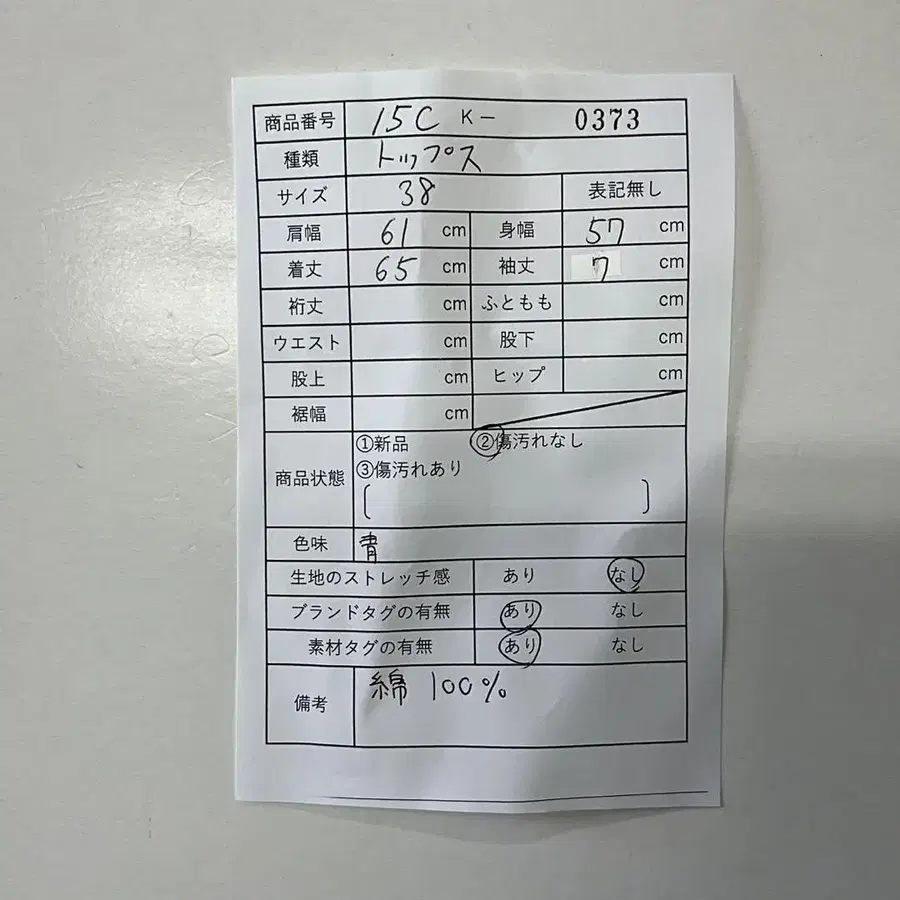 商品番号 15C K- 0373
種類 トップス
サイズ 38 表記無し
肩幅 61 cm 身幅 57 cm
着丈 65 cm 袖丈 7 cm
裄丈 cm ふともも cm
ウエスト cm 股下 cm
股上 cm ヒップ cm
裾幅 cm
商品状態 ①新品 ②傷汚れなし
③傷汚れあり
[ ]
色味 青
生地のストレッチ感 あり なし
ブランドタグの有無 あり なし
素材タグの有無 あり なし
備考 綿 100%